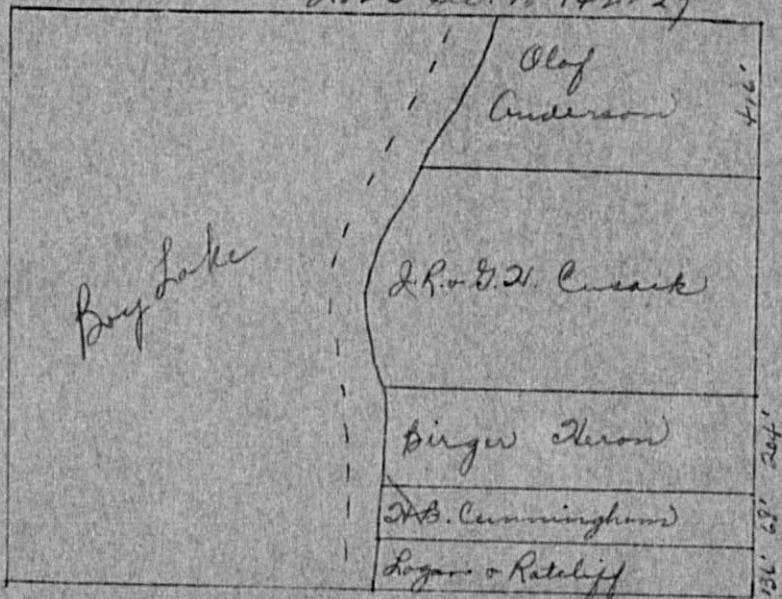 Olof
Anderson
416'
Boy Lake
J.R. & G.H. Cusack
Birger Heron
204'
H.B. Cunningham
68'
Logan & Ratcliff
136'